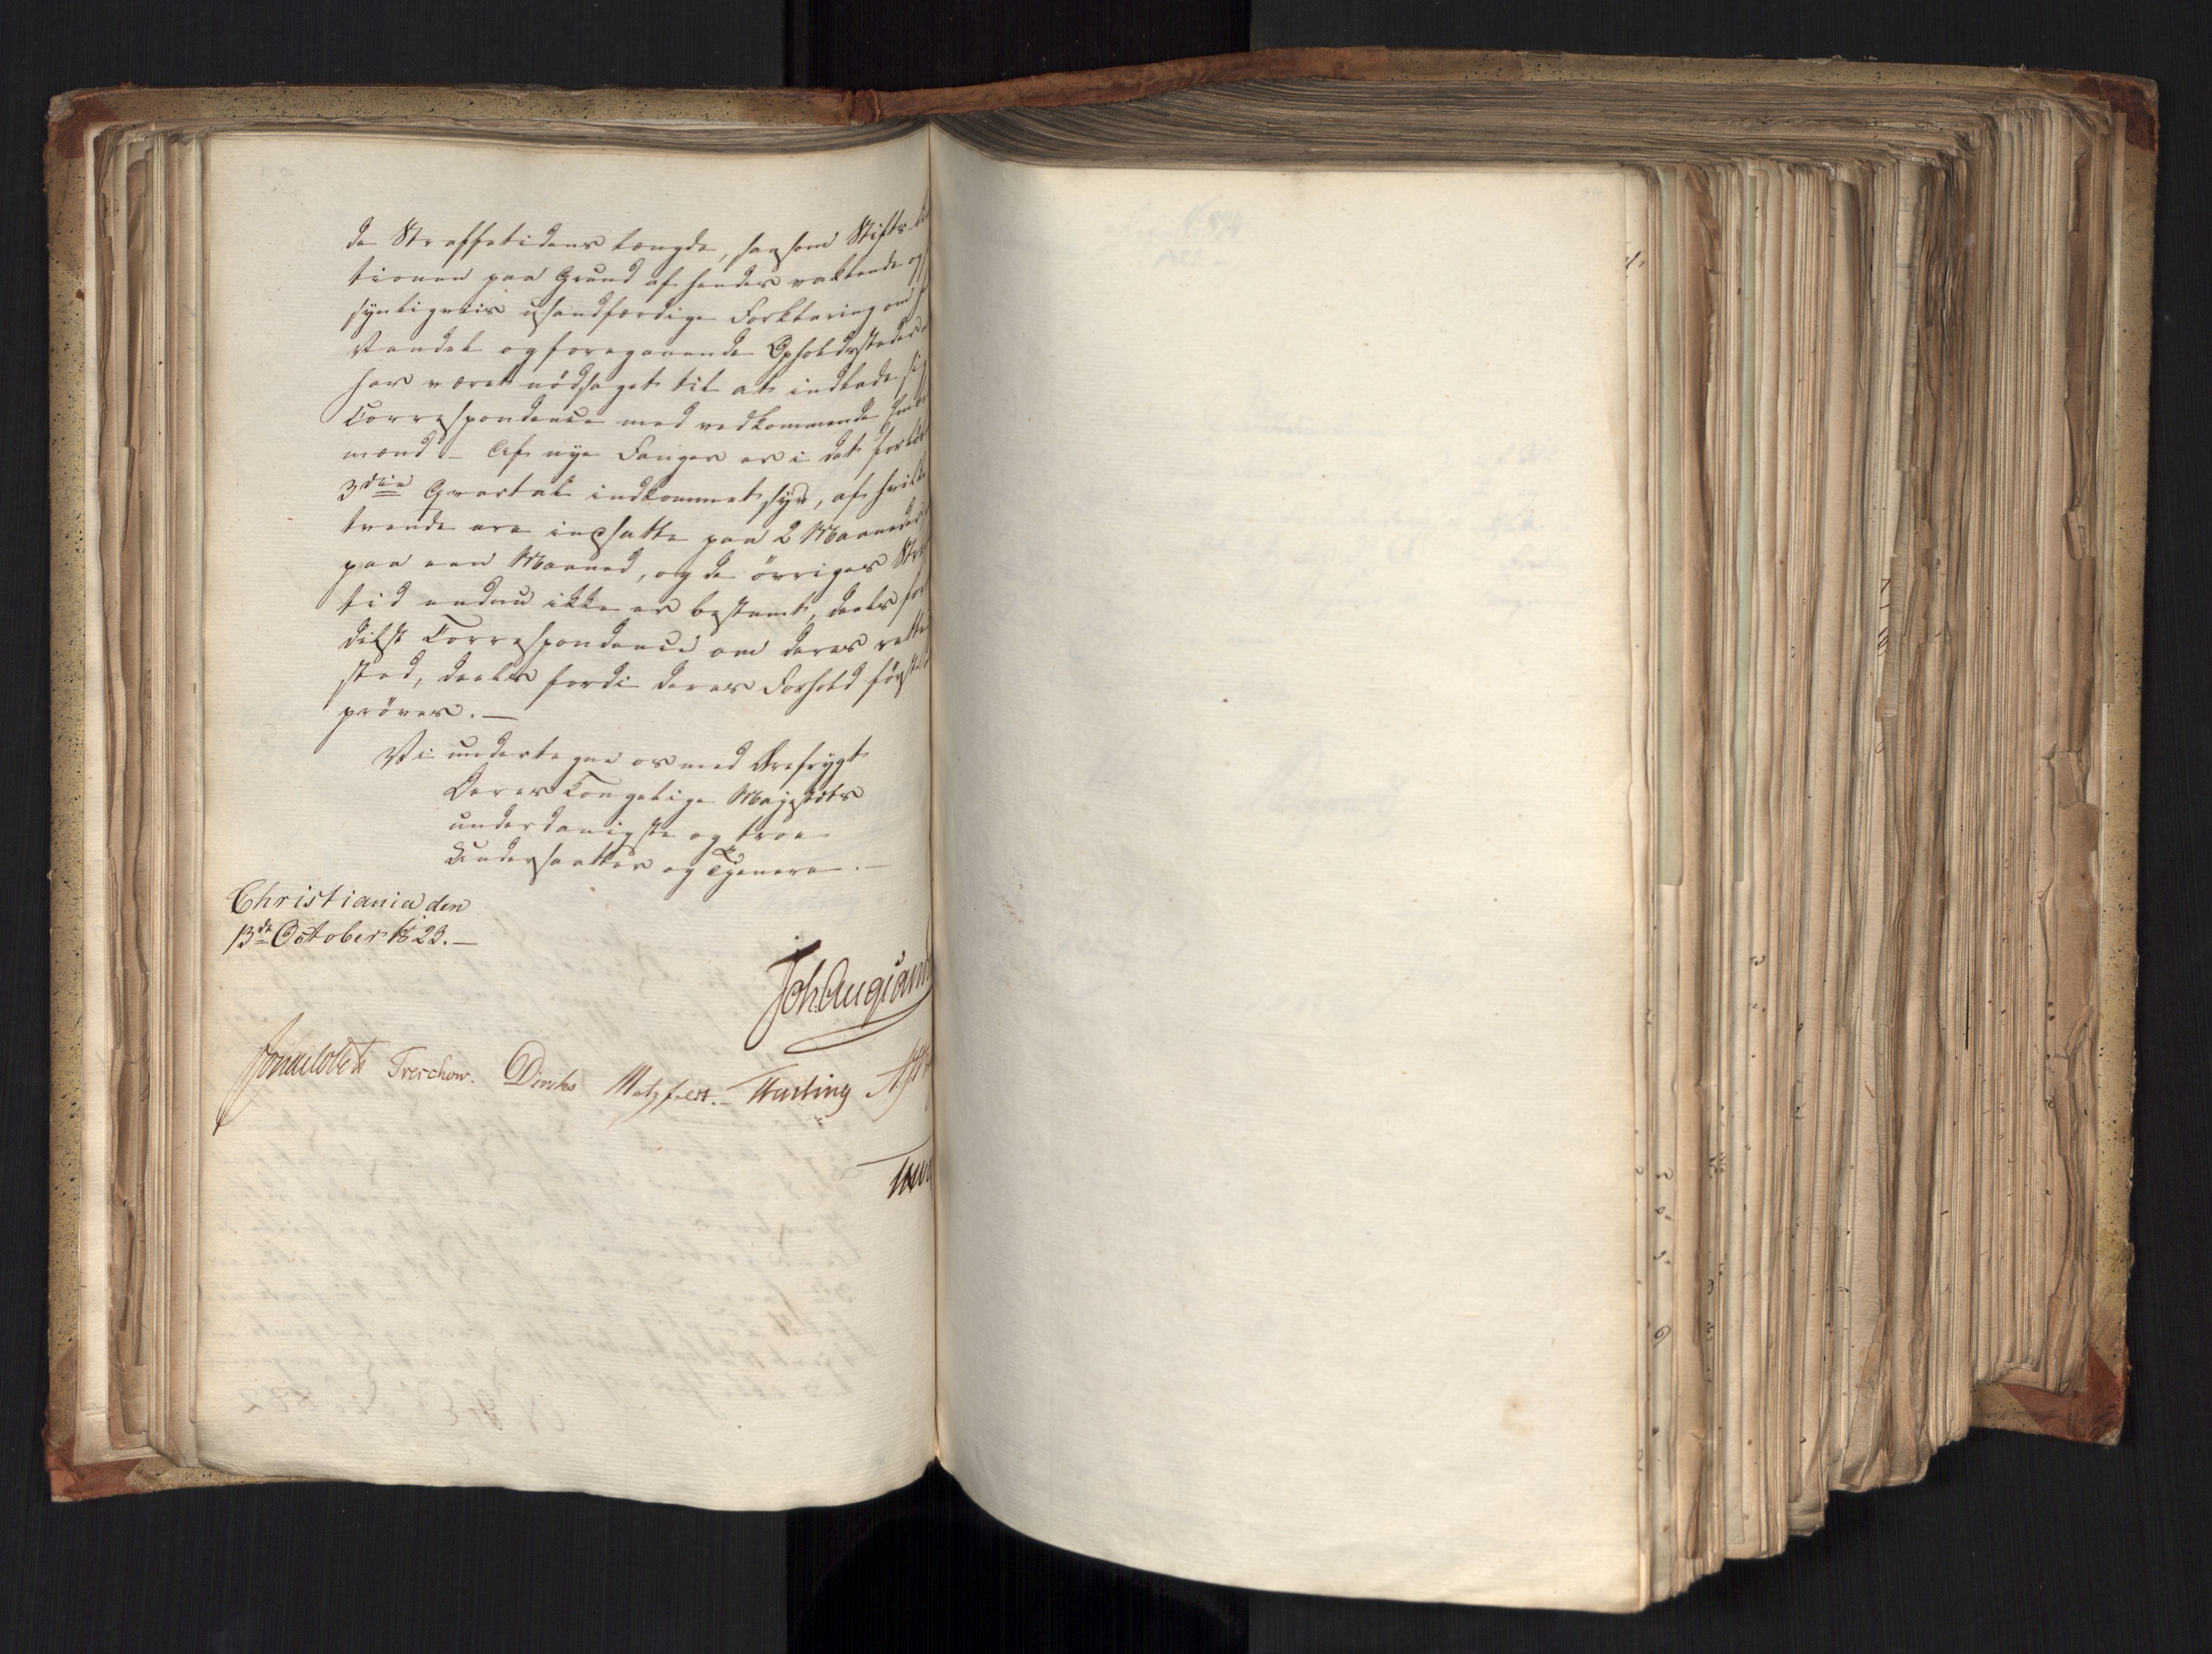 de Straffetidens Længde, saasom Stifts-
tionen paa Grund af hendes vaklende og
synligviis usandfærdige Forklaring om
Vandel og foregaaende Opholdssteder
har været nødsaget til at indlade sig
Correspondence med vedkommende Em
mænd – Af nye Fanger er i det forløb
3die Qvartal indkommet syv, af hvilke
tvende ere indsatte paa 2 Maaneder
paa een Maaned, og de øvriges Straf
tid endnu ikke er bestemt, deels for
delst Correspondence om deres rette
sted, deels fordi deres Forhold først
prøves. –
Vi undertegne os med Ærefrygt
Deres Kongelige Majestæts
underdanigste og troe
Undersaatter og Tjenere. –
Christiania den
13de October 1823. –
Joh. Aug. Sand
Sommerhielm Treschow. Diriks Motzfeldt. – Fasting